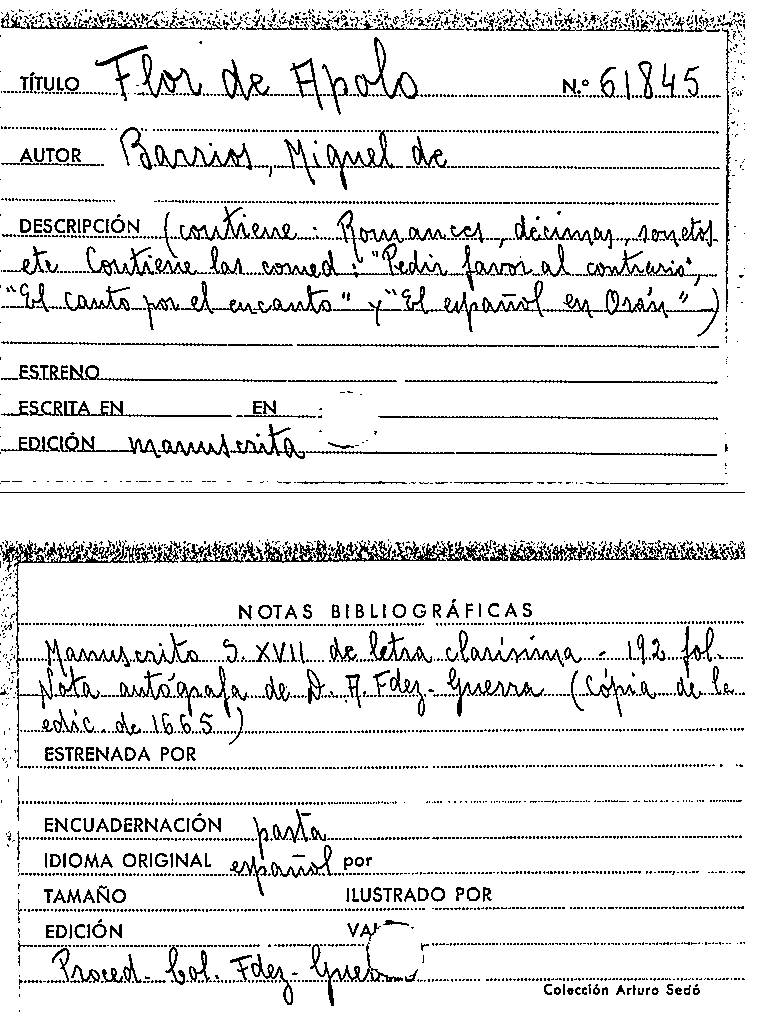 TÍTULO Flor de Apolo N.º 61845
AUTOR Barrios, Miguel de
DESCRIPCIÓN (contiene: Romances, décimas, sonetos
etc Contiene las comed: "Pedir favor al contrario",
"El canto por el encanto" y "El español en Orán")
ESTRENO
ESCRITA EN EN
EDICIÓN manuscrita
NOTAS BIBLIOGRÁFICAS
Manuscrito S. XVII de letra clarísima - 192 fol.
Nota autógrafa de D. A. Fdez-Guerra (Cópia de la
edic. de 1665)
ESTRENADA POR
ENCUADERNACIÓN pasta
IDIOMA ORIGINAL español por
TAMAÑO ILUSTRADO POR
EDICIÓN
Proced. Col. Fdez-
Colección Arturo Sedó